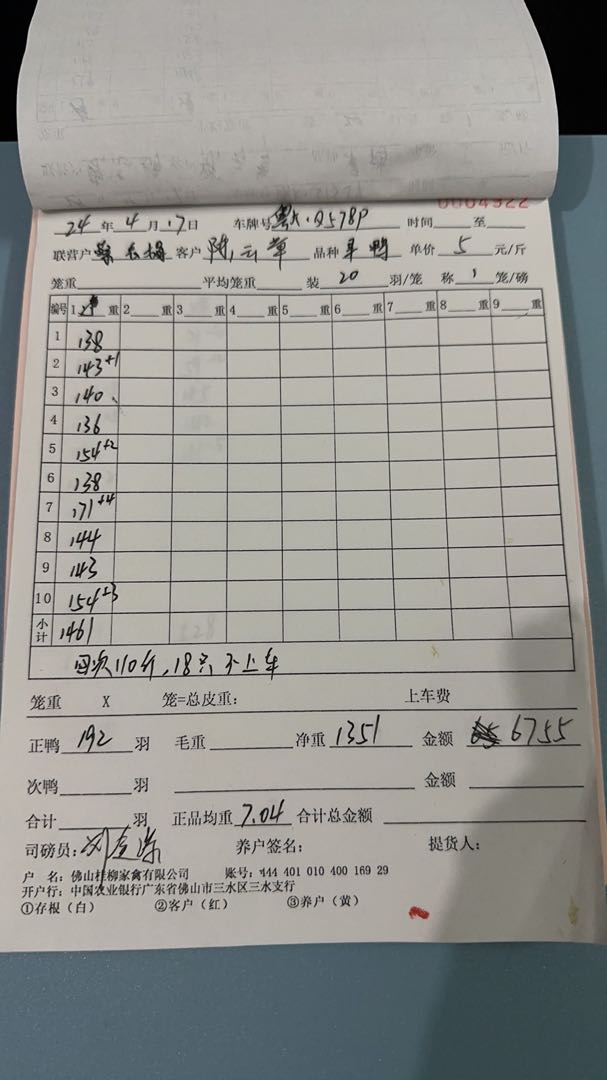 0004922
24 年 4 月 17 日 车牌号 Q578P 时间 至
联营户 客户 陈云草 品种 鸭 单价 5 元/斤
笼重 平均笼重 装 20 羽/笼 称 1 笼/磅
编号 1 重 2 重 3 重 4 重 5 重 6 重 7 重 8 重 9 重
1 138
2 143+1
3 140
4 136
5 154+2
6 138
7 171+4
8 144
9 143
10 154+3
小计 1461
110斤,18只不上车
笼重 X 笼=总皮重: 上车费
正鸭 192 羽 毛重 净重 1351 金额 6755
次鸭 羽 金额
合计 羽 正品均重 7.04 合计总金额
司磅员: 养户签名: 提货人:
户 名: 佛山桂柳家禽有限公司 账号: 444 401 010 400 169 29
开户行: 中国农业银行广东省佛山市三水区三水支行
①存根(白) ②客户(红) ③养户(黄)